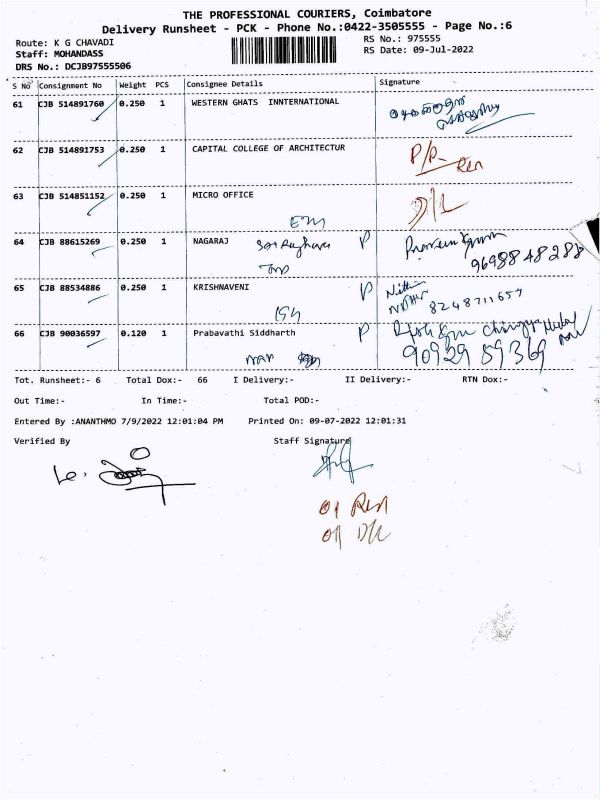 THE PROFESSIONAL COURIERS, Coimbatore
Delivery Runsheet - PCK - Phone No.:0422-3505555 - Page No.:6
Route: K G CHAVADI
RS No.: 975555
Staff: MOHANDASS
RS Date: 09-Jul-2022
DRS No.: DCJB97555506
S No Consignment No Weight PCS Consignee Details Signature
61 CJB 514891760 0.250 1 WESTERN GHATS INNTERNATIONAL
62 CJB 514891753 0.250 1 CAPITAL COLLEGE OF ARCHITECTUR P/P-
63 CJB 514851152 0.250 1 MICRO OFFICE D/L
64 CJB 88615269 0.250 1 NAGARAJ P
9698848288
65 CJB 88534886 0.250 1 KRISHNAVENI P
8248711657
66 CJB 90036597 0.120 1 Prabavathi Siddharth P
9092959369
Tot. Runsheet:- 6 Total Dox:- 66 I Delivery:- II Delivery:- RTN Dox:-
Out Time:- In Time:- Total POD:-
Entered By :ANANTHMO 7/9/2022 12:01:04 PM Printed On: 09-07-2022 12:01:31
Verified By Staff Signature
01
01 D/L